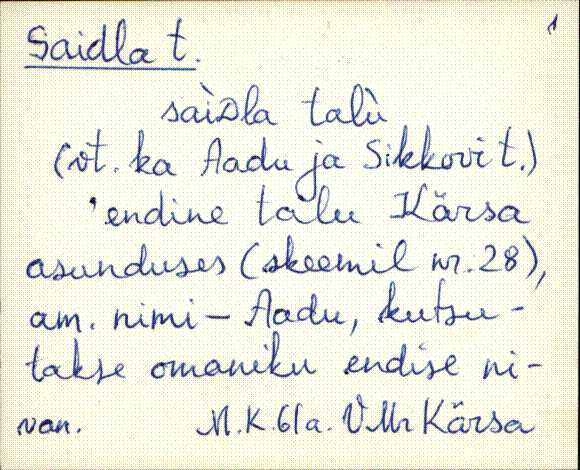 Saidla t.
1
saìᴅla talù
(vt. ka Aadu ja Sikkovi t.)
'endine talu Kärsa
asunduses (skeemil nr. 28),
am. nimi – Aadu, kutsu-
takse omaniku endise ni-
van. M.K. 61a. VMr Kärsa